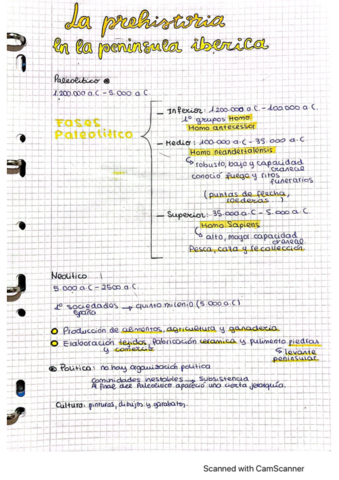 La prehistoria
en la península ibérica
Paleolítico
1.200.000 a.C - 5.000 a.C
Fases
Paleolítico
- Inferior: 1.200.000 a.C - 100.000 a.C.
1º grupos Homo
Homo antecessor
- Medio: 100.000 a.C - 35.000 a.C
Homo neandertalensis
robusto, bajo y capacidad
craneal
conoció fuego y ritos
funerarios
(puntas de flecha,
raederas)
- Superior: 35.000 a.C - 5.000 a.C
Homo Sapiens
alto, mayor capacidad
craneal
Pesca, caza y recolección
Neolítico
5.000 a.C - 2500 a.C
1º sociedades → quinto milenio (5.000 a.C)
España
Producción de alimentos, agricultura y ganadería
Elaboración tejidos, fabricación cerámica y pulimento piedras
y comercio
levante
peninsular
Política: no hay organización política
Comunidades inestables → Subsistencia
A final del Paleolítico apareció una cierta jerarquía.
Cultura: pinturas, dibujos y garabatos.
Scanned with CamScanner